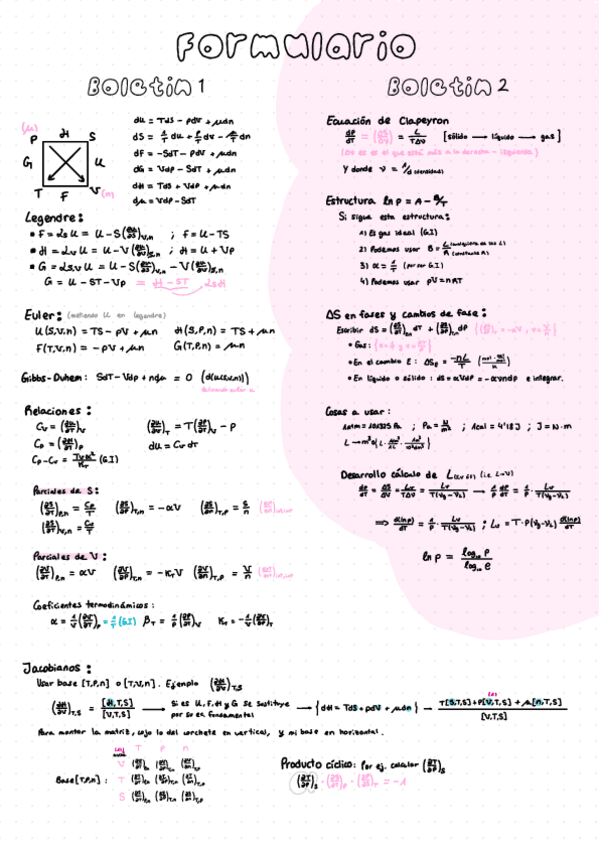 Formulario
Boletín 1
(μ)
P H S
G U
T F V (n)
dU = TdS - pdV + μdn
dS = 1/T du + P/T dV - μ/T dn
dF = -SdT - PdV + μdn
dG = Vdp - SdT + μdn
dH = TdS + Vdp + μdn
dμ = Vdp - SdT
Legendre:
• F = L_S U = U - S(∂U/∂S)V,n ; F = U - TS
• H = L_V U = U - V(∂U/∂V)S,n ; H = U + Vp
• G = L_S,V U = U - S(∂U/∂S)V,n - V(∂U/∂V)S,n
G = U - ST - Vp = H - ST
Euler: (metiendo U en legendre)
U(S,V,n) = TS - pV + μn H(S,P,n) = TS + μn
F(T,V,n) = -pV + μn G(T,P,n) = μn
Gibbs-Duhem: SdT - Vdp + ndμ = 0 (d(U(S,V,n)))
Relaciones:
Cv = (∂U/∂T)V (∂U/∂V)T = T(∂P/∂T)V - P
Cp = (∂H/∂T)P dU = Cv dT
Cp - Cv = TVα²/K_T (G.I)
Parciales de S:
(∂S/∂T)P,n = Cp/T (∂S/∂P)T,n = -αV (∂S/∂n)T,P = S/n
(∂S/∂T)V,n = Cv/T
Parciales de V:
(∂V/∂T)P,n = αV (∂V/∂P)T,n = -K_T V (∂V/∂n)T,P = V/n
Coeficientes termodinámicos:
α = 1/V (∂V/∂T)P = 1/T (G.I) β_T = 1/P (∂P/∂T)V K_T = -1/V (∂V/∂P)T
Boletín 2
Ecuación de Clapeyron
dP/dT = (ΔS/ΔV) = L/TΔV [sólido → líquido → gas]
(ΔS es es el que está más a la derecha - izquierda)
Y donde v = 1/d (densidad)
Estructura ln p = A - B/T
Si sigue esta estructura:
1) Es gas ideal (G.I)
2) Podemos usar B = L/R
3) α = 1/T (por ser G.I)
4) Podemos usar pV = nRT
ΔS en fases y cambios de fase:
Escribir dS = (∂S/∂T)P,n dT + (∂S/∂P)T,n dP
• Gas:
• En el cambio E: ΔS_E = -nL/T
• En líquido o sólido: dS = αVdP = -αvndp e integrar.
Cosas a usar:
1atm = 101325 Pa ; Pa = N/m² ; 1cal = 4'18J ; J = N·m
Desarrollo cálculo de L (i.e L-V)
dP/dT = ΔS/ΔV = Lv/TΔV = Lv/T(Vg-VL) → 1/P dP/dT = 1/P · Lv/T(Vg-VL)
⇒ d(ln p)/dT = 1/P · Lv/T(Vg-VL) ; Lv = T·P(Vg-VL) d(ln p)/dT
ln p = log₁₀ p / log₁₀ e
Jacobianos:
Usar base [T,P,n] o [T,V,n]. Ejemplo (∂H/∂V)T,S
(∂H/∂V)T,S = [H,T,S]/[V,T,S] → Si es U, F, H y G se sustituye → {dH = TdS + Vdp + μdn} → T[S,T,S]+V[P,T,S]+μ[n,T,S] / [V,T,S]
por su ec. fundamental
Para montar la matriz, cojo lo del corchete en vertical, y mi base en horizontal.
T P n
V (∂V/∂T)P,n (∂V/∂P)T,n (∂V/∂n)T,P
Base[T,P,n]: T (∂T/∂T)P,n (∂T/∂P)T,n (∂T/∂n)T,P
S (∂S/∂T)P,n (∂S/∂P)T,n (∂S/∂n)T,P
Producto cíclico: Por ej. calcular (∂T/∂P)S
(∂T/∂P)S · (∂S/∂T)P · (∂P/∂S)T = -1